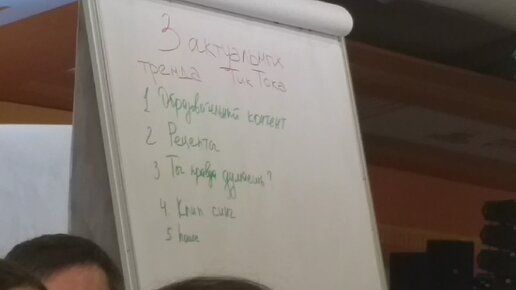 3 актуальных
тренда Тик Тока
1 Образовательный контент
2 Рецепты
3 Ты правда думаешь?
4. Клип
5